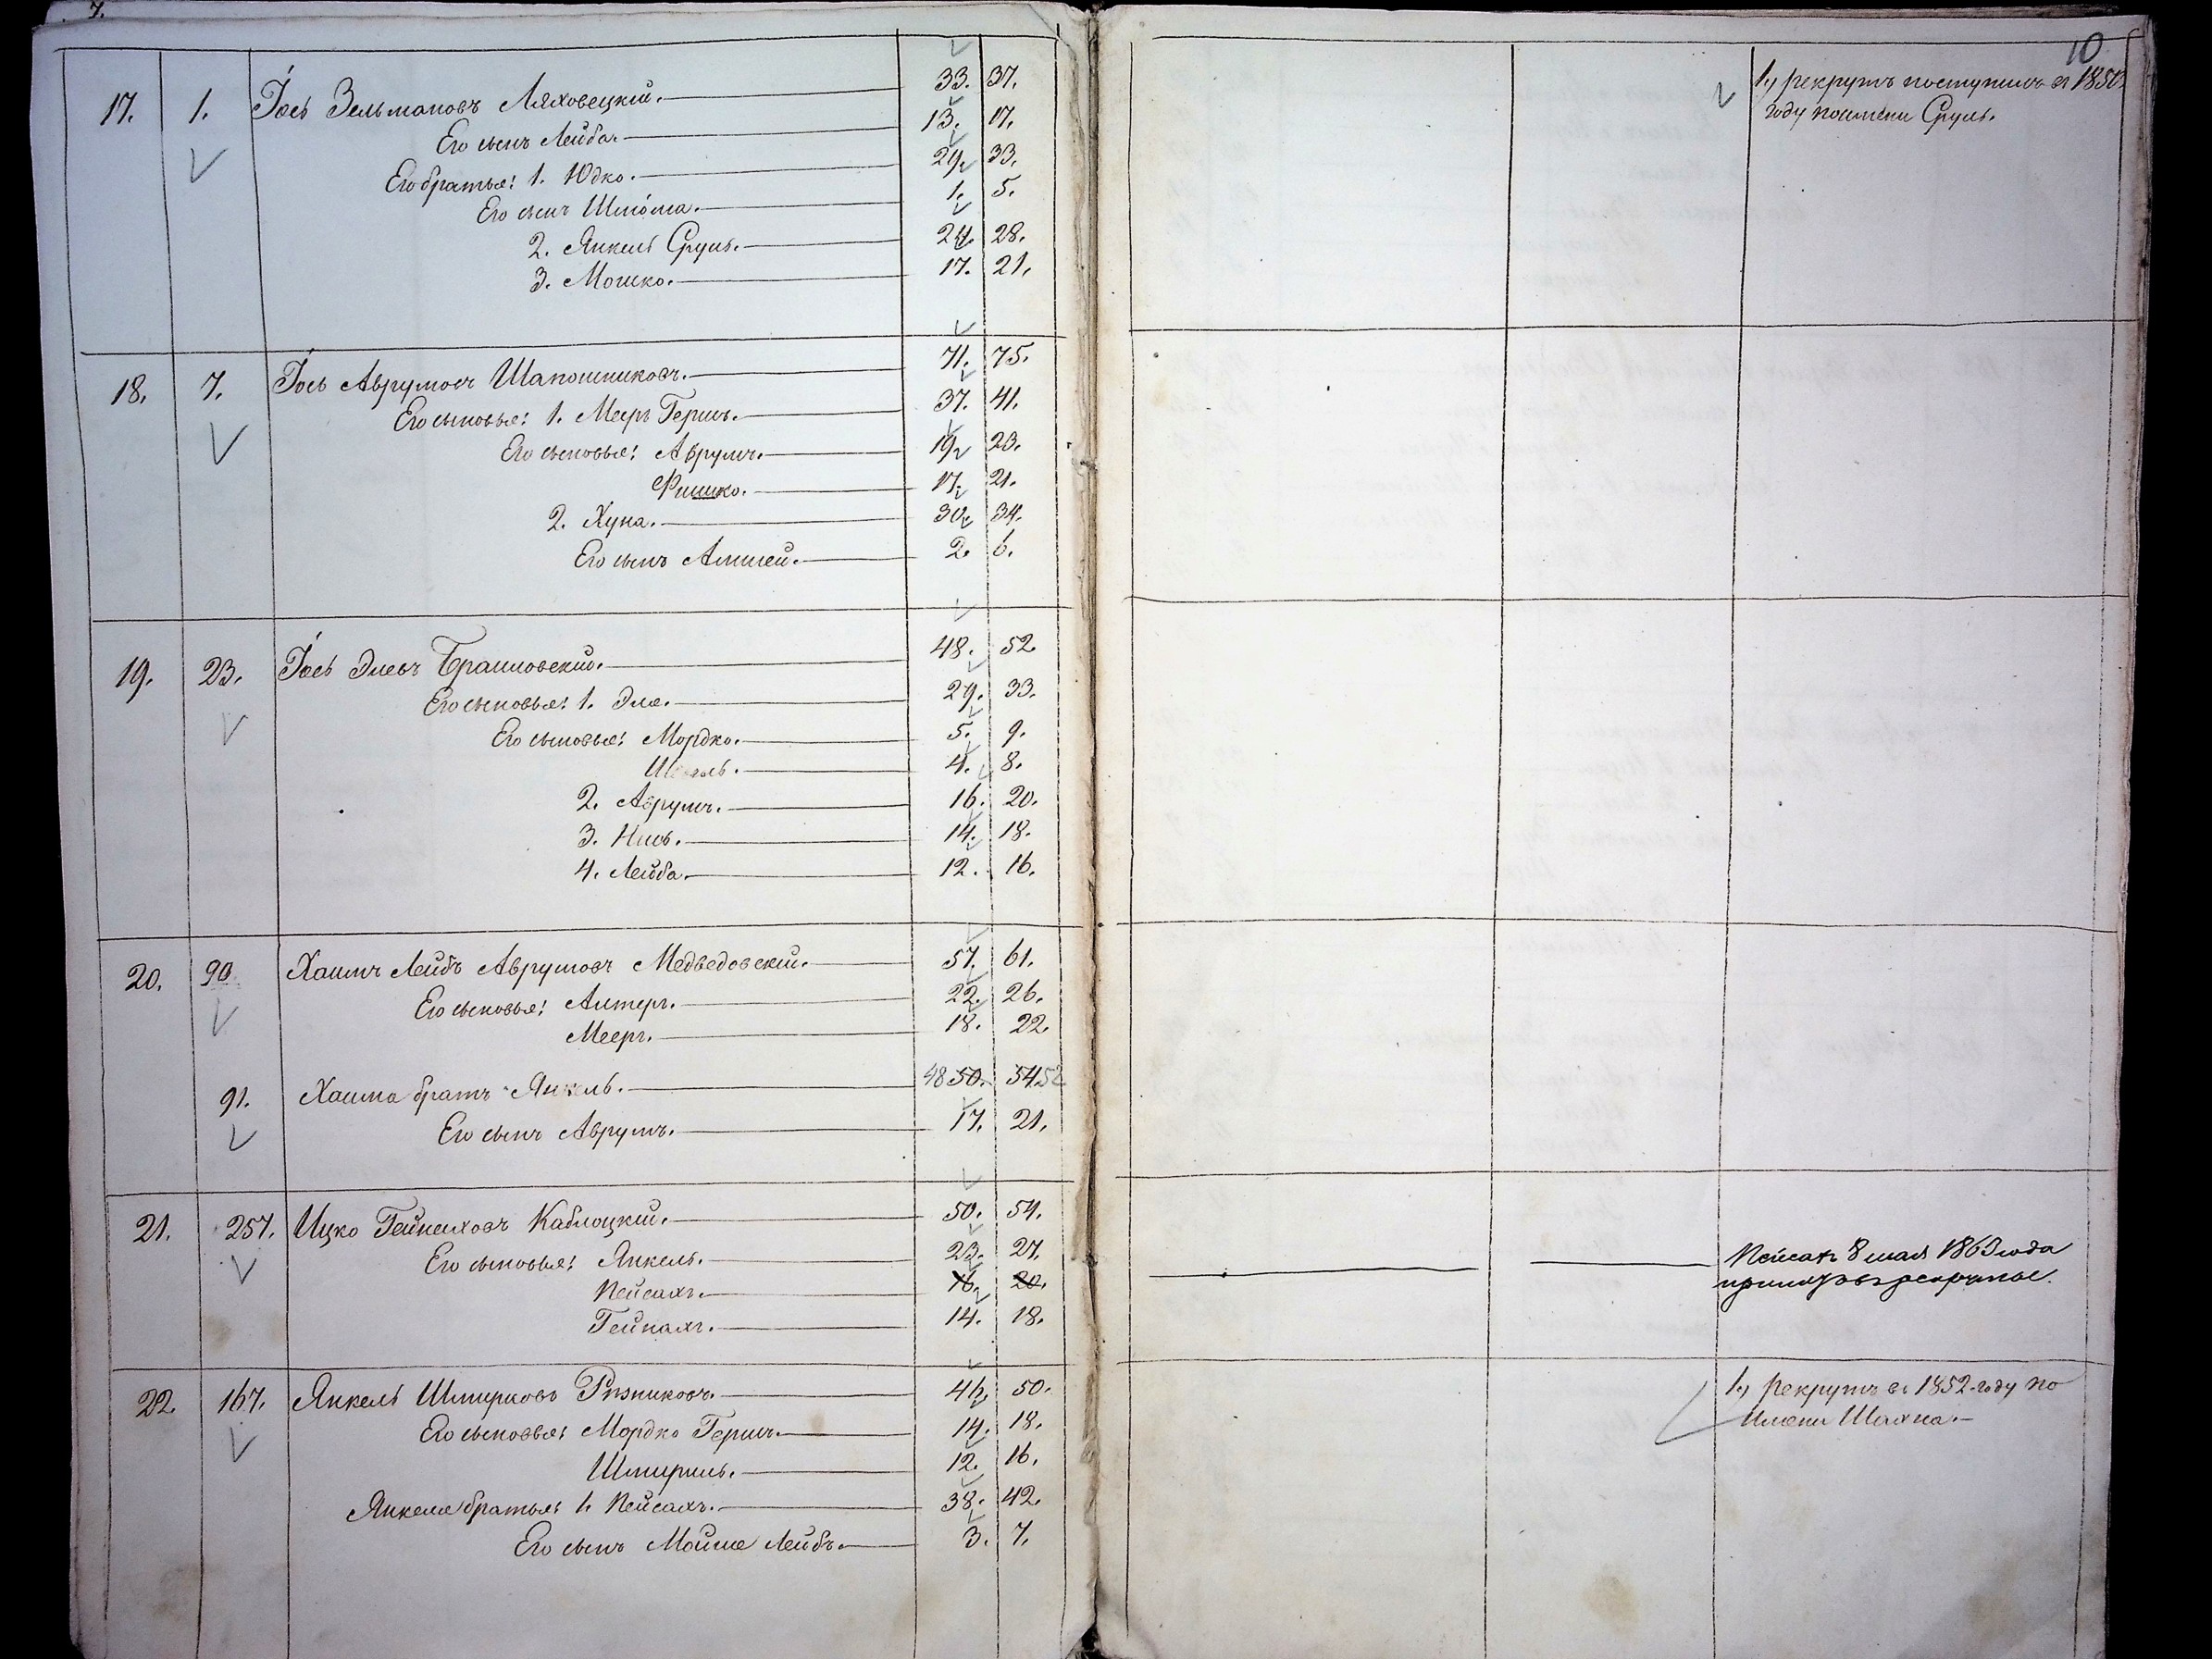 7.
10
17. 1. Іось Зельмановъ Ляховецкій. 33. 37.
Его сынъ Лейба. 13. 17.
Его братья: 1. Юдко. 29. 33.
Его сынъ Шлёма. 1. 5.
2. Янкель Сруль. 24. 28.
3. Мошко. 17. 21.
1, рекрутъ поступилъ въ 1850
году по имени Сруль.
18. 7. Іось Аврумовъ Шапошниковъ. 71. 75.
Его сыновья: 1. Мееръ Гершъ. 37. 41.
Его сыновья: Аврумъ. 19. 23.
Фишко. 17. 21.
2. Хуна. 30. 34.
Его сынъ Алтей. 2. 6.
19. 23. Іось Элевъ Браиловскій. 48. 52.
Его сыновья: 1. Эля. 29. 33.
Его сыновья: Мордко. 5. 9.
4. 8.
2. Аврумъ. 16. 20.
3. 14. 18.
4. Лейба. 12. 16.
20. 90. Хаимъ Лейбъ Аврумовъ Медведовскій. 57. 61.
Его сыновья: Алтеръ. 22. 26.
Мееръ. 18. 22.
91. Хаима братъ Янкель. 48 50. 54. 52
Его сынъ Аврумъ. 17. 21.
21. 257. Ицко Гейнаховъ Каблоцкій. 50. 54.
Его сыновья: Янкель. 23. 27.
Пейсахъ. 16. 20.
Гейнахъ. 14. 18.
Пейсахъ 8 мая 1863 года
принятъ въ рекруты.
22. 167. Янкель Шмирковъ Рѣзниковъ. 46. 50.
Его сыновья: Мордко Гершъ. 14. 18.
Шмериль. 12. 16.
Янкеля братья: 1. Пейсахъ. 38. 42.
Его сынъ Мойше Лейбъ. 3. 7.
1, рекрутъ въ 1852 году по
имени Шахна.